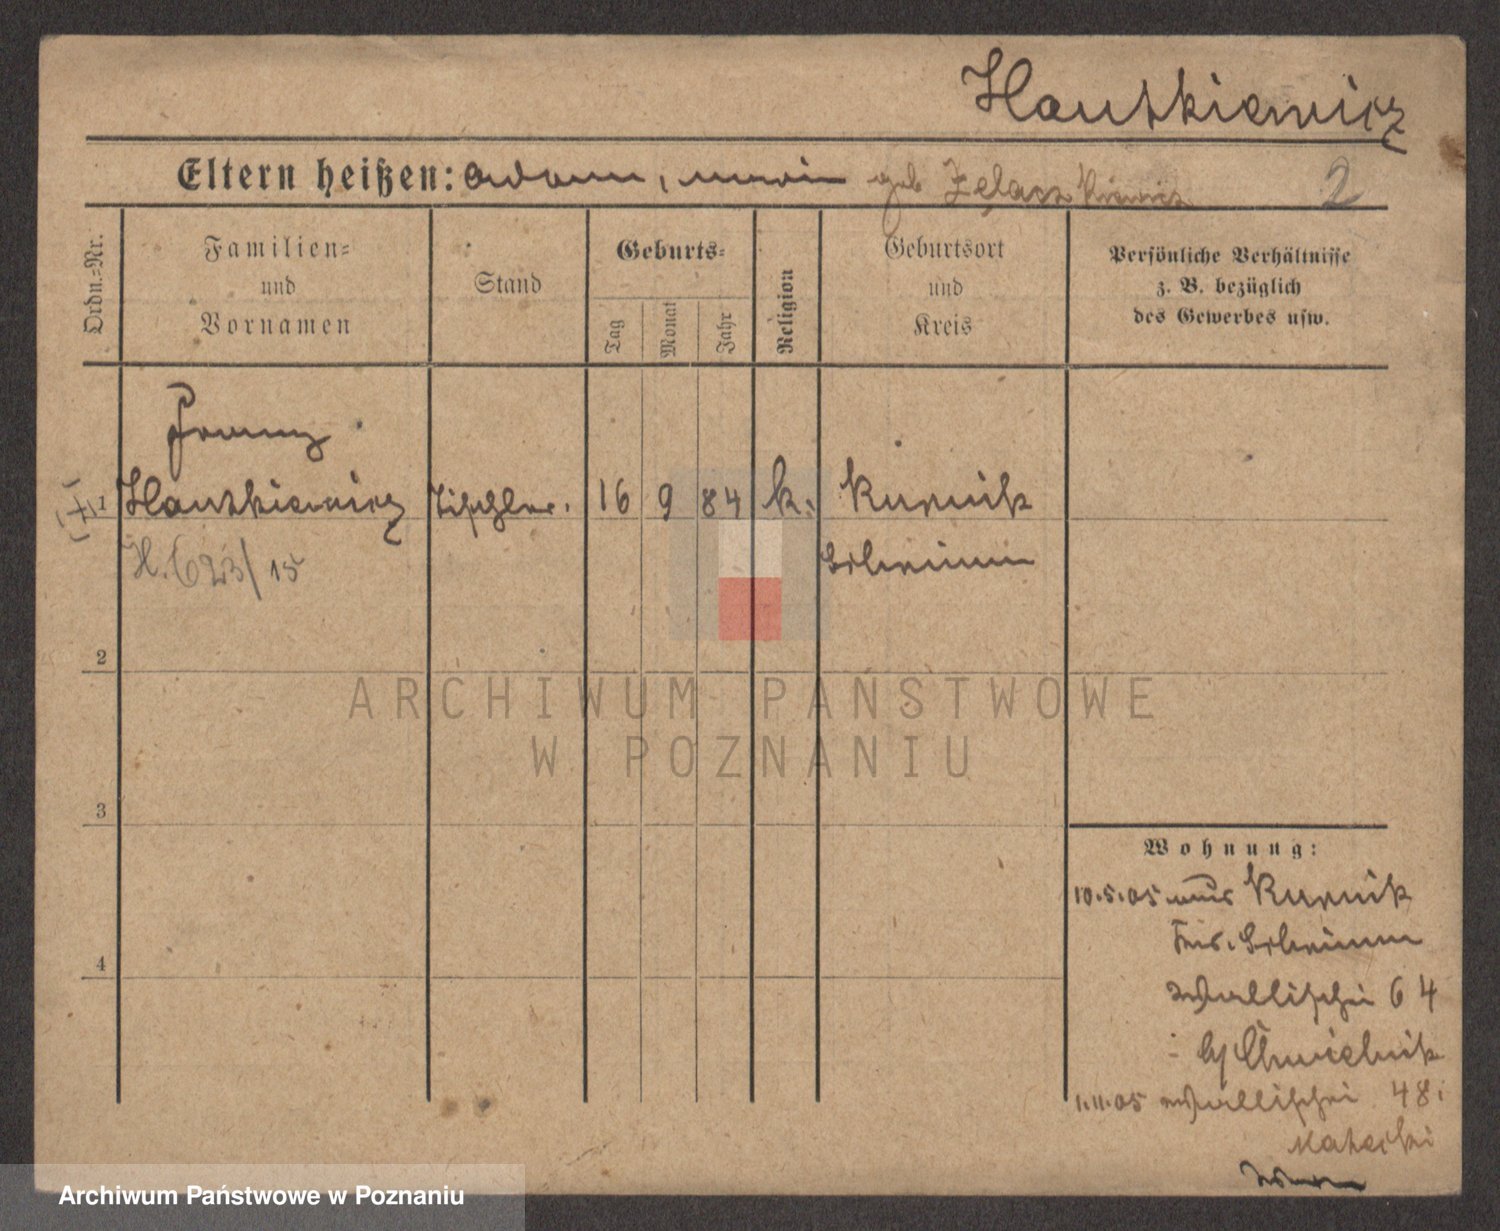 Hantkiewicz
Eltern heißen: Adam, Marie geb Zelaszkiewicz 2
Ordn.-Nr.
Familien-
und
Vornamen
Stand
Geburts-
Tag
Monat
Jahr
Religion
Geburtsort
und
Kreis
Persönliche Verhältnisse
z. B. bezüglich
des Gewerbes usw.
Franz
1 Hantkiewicz Tischler. 16 9 84 k. Kurnik
H. 623/15 Schrimm
2
3
4
Wohnung:
10.5.05 aus Kurnik
Krs. Schrimm
Wallischei 64
b/ Chmielnik
1.11.05 Wallischei 48 i
Matecki
ARCHIWUM PAŃSTWOWE
W POZNANIU
Archiwum Państwowe w Poznaniu